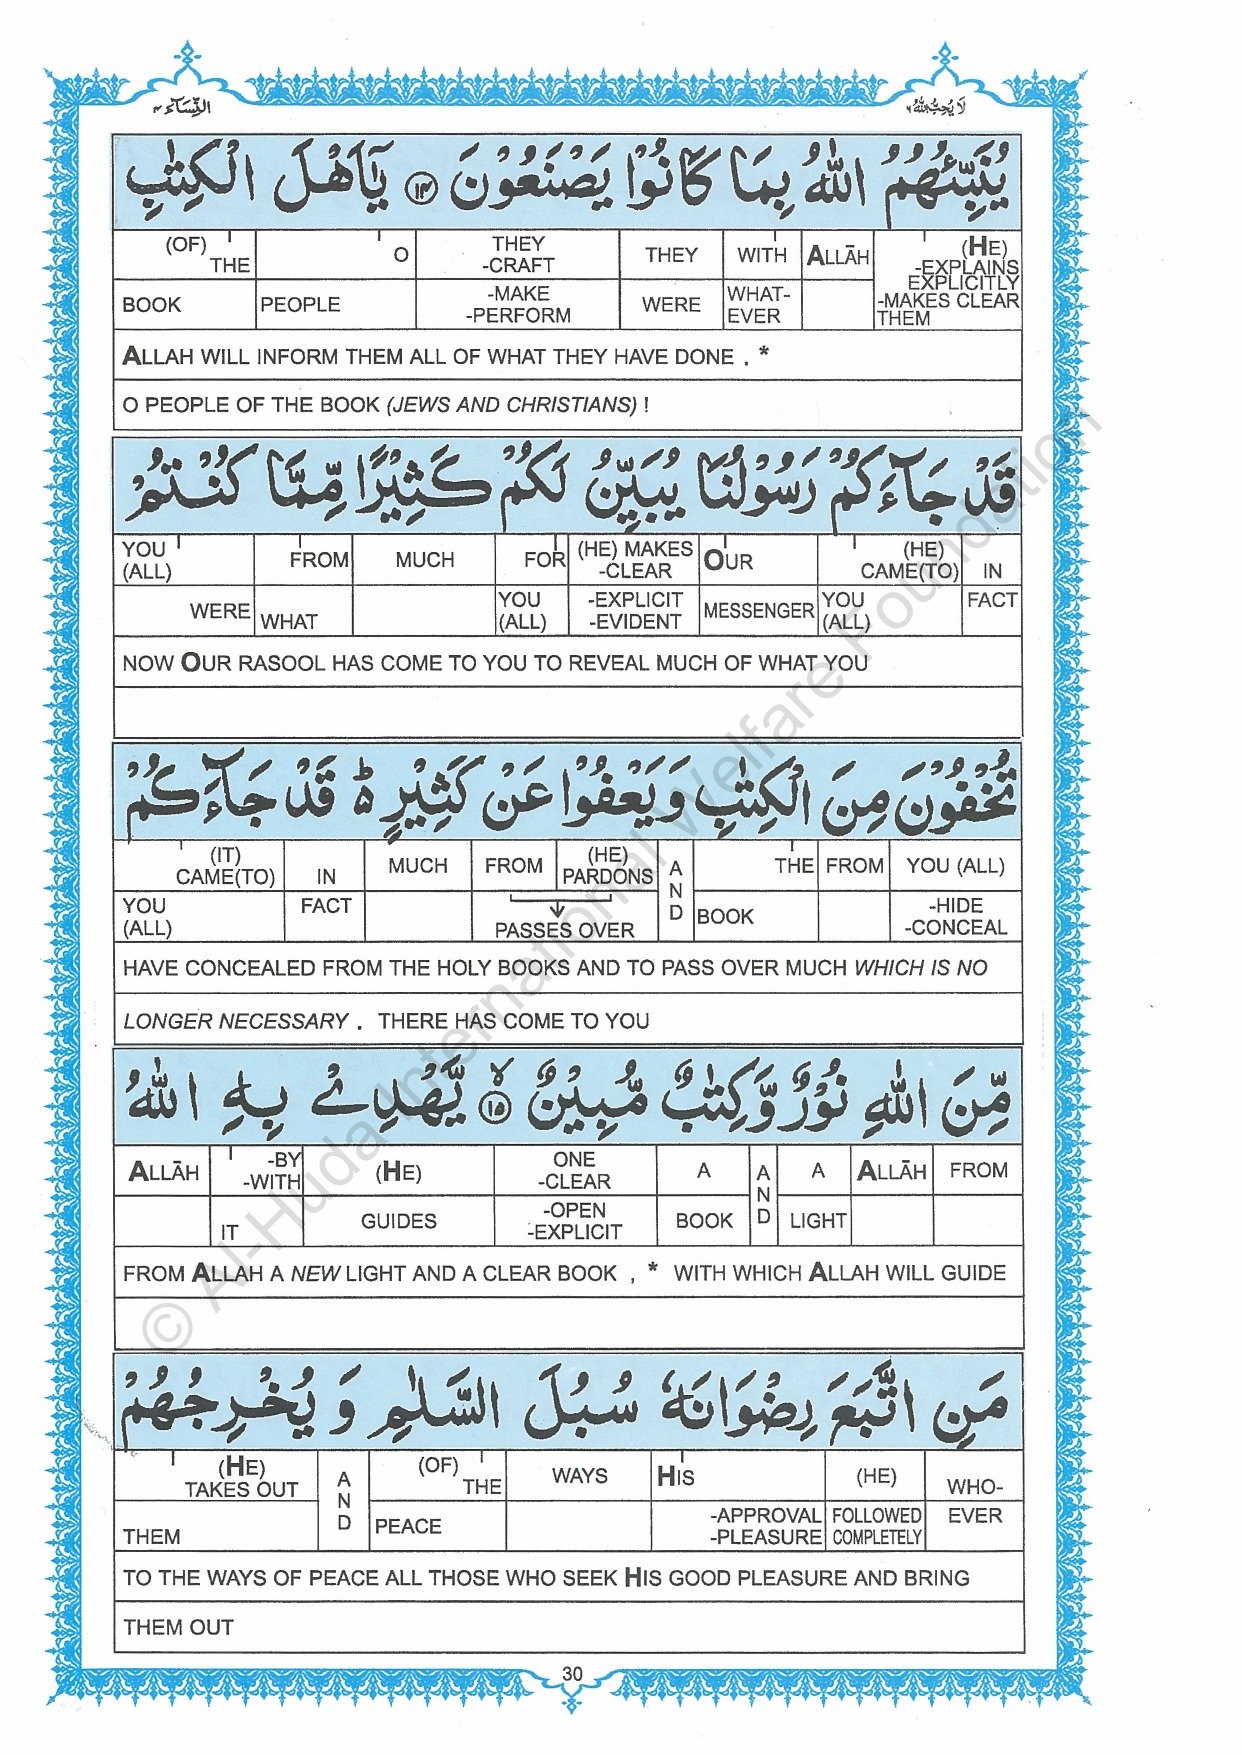 لَا يُحِبُّ اللّٰهُ ٦
النِّسَآء ٤
يُنَبِّئُهُمُ اللّٰهُ بِمَا كَانُوْا يَصْنَعُوْنَ ١٤ يٰۤاَهْلَ الْكِتٰبِ
(HE) -EXPLAINS EXPLICITLY -MAKES CLEAR THEM
ALLĀH
WITH WHAT-EVER
THEY WERE
THEY -CRAFT -MAKE -PERFORM
O PEOPLE
(OF) THE BOOK
ALLAH WILL INFORM THEM ALL OF WHAT THEY HAVE DONE . *
O PEOPLE OF THE BOOK (JEWS AND CHRISTIANS) !
قَدْ جَآءَكُمْ رَسُوْلُنَا يُبَيِّنُ لَكُمْ كَثِيْرًا مِّمَّا كُنْتُمْ
IN FACT
(HE) CAME(TO) YOU (ALL)
OUR MESSENGER
(HE) MAKES -CLEAR -EXPLICIT -EVIDENT
FOR YOU (ALL)
MUCH
FROM WHAT
YOU (ALL) WERE
NOW OUR RASOOL HAS COME TO YOU TO REVEAL MUCH OF WHAT YOU
تُخْفُوْنَ مِنَ الْكِتٰبِ وَيَعْفُوْا عَنْ كَثِيْرٍ ۵ؕ قَدْ جَآءَكُمْ
YOU (ALL) -HIDE -CONCEAL
FROM
THE BOOK
AND
(HE) PARDONS
FROM
PASSES OVER
MUCH
IN FACT
(IT) CAME(TO) YOU (ALL)
HAVE CONCEALED FROM THE HOLY BOOKS AND TO PASS OVER MUCH WHICH IS NO
LONGER NECESSARY . THERE HAS COME TO YOU
مِّنَ اللّٰهِ نُوْرٌ وَّكِتٰبٌ مُّبِيْنٌ ۙ١٥ يَّهْدِيْ بِهِ اللّٰهُ
FROM
ALLĀH
A LIGHT
AND
A BOOK
ONE -CLEAR -OPEN -EXPLICIT
(HE) GUIDES
-BY -WITH IT
ALLĀH
FROM ALLAH A NEW LIGHT AND A CLEAR BOOK , * WITH WHICH ALLAH WILL GUIDE
مَنِ اتَّبَعَ رِضْوَانَهٗ سُبُلَ السَّلٰمِ وَيُخْرِجُهُمْ
WHO-EVER
(HE) FOLLOWED COMPLETELY
HIS -APPROVAL -PLEASURE
WAYS
(OF) THE PEACE
AND
(HE) TAKES OUT THEM
TO THE WAYS OF PEACE ALL THOSE WHO SEEK HIS GOOD PLEASURE AND BRING
THEM OUT
30
© Al-Huda International Welfare Foundation